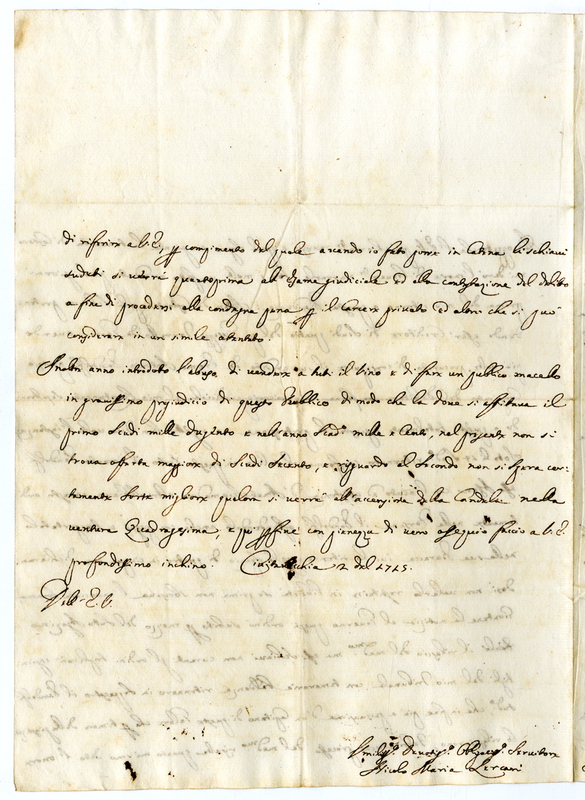 di riferire a V. E., per compimento del quale avendo io fatto porre in Catena li schiavi
suduti si verrà quantoprima all'esame giudiciale ed alla contestazione del delitto
a fine di procedersi alla condegna pena per il Carcere privato ed altro che si può
considerare in un simile attentato.
Inoltre anno introdotto l'abuso di vendere a tutti il Vino e di fare un publico macello
in gravissimo pregiudicio di questo Publico di modo che la dove si affittava il
primo Scudi mille dugento e nell'anno mille e Cento, nel presente non si
trova offerta maggiore di Scudi Seicento, e riguardo al Secondo non si spera cer-
tamente sorte migliore qualora si verrà all'accensione della Candela nella
ventura Quadragesima, e qui per fine con pienezza di vero ossequio faccio a V. E.
profondissimo inchino. Civitavecchia 2 del 1725.
Dell' E. V.
Umiliss.o Devotiss.o Obligatiss.o Servitore
Nicolo Maria Lercari